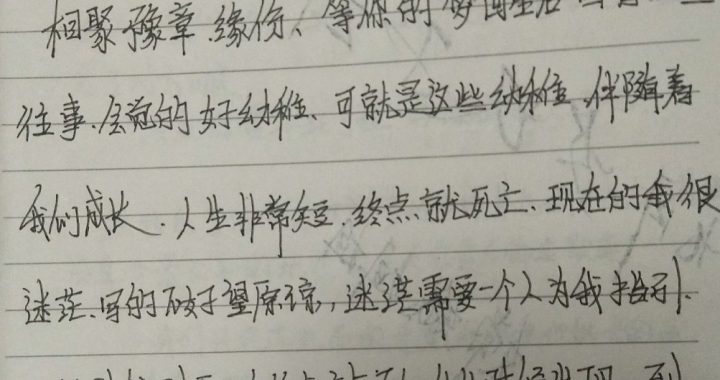 相聚豫章.缘份、等你的梦回
往事.会觉的好幼稚、可就是这些幼稚.伴随着
我们成长.人生非常短.终点就死亡、现在的我很
迷茫.写的不好望原谅,迷茫需要一个人为我指引.